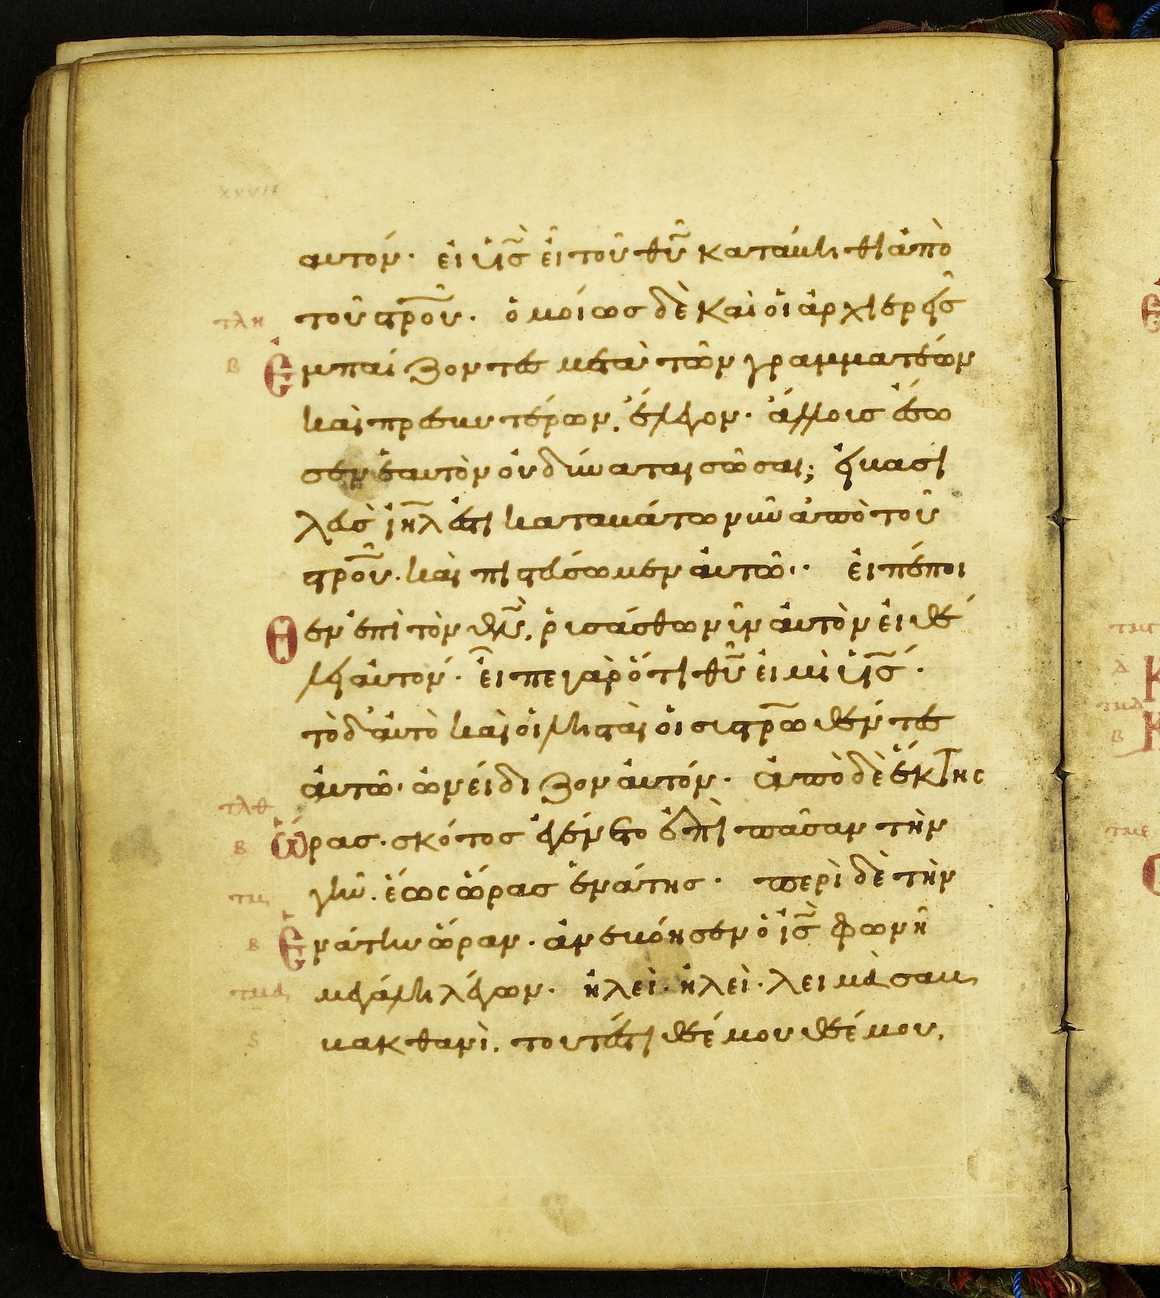 αυτόν· εἰ υἱ̅ς̅ εἶ τοῦ θ̅υ̅ κατάβηθι ἀπὸ
τοῦ στ̅ρ̅ου̅· ὁμοίως δὲ καὶ οἱ ἀρχιερεῖς
τλη
β
Ἐμπαίζοντες μετὰ τῶν γραμματέων
καὶ πρεσβυτέρων, ἔλεγον· ἄλλους ἔσω
σεν ἑαυτὸν οὐ δύναται σῶσαι; εἰ βασι
λεὺς ι̅η̅λ̅ ἐστι καταβάτω νῦν ἀπὸ τοῦ
στ̅ρ̅ου̅· καὶ πιστεύσωμεν αὐτῶ·· εἰ πέποι
Θεν ἐπὶ τὸν θ̅ν̅, ῥυσάσθω νῦν αὐτὸν εἰ θέ
λει αὐτόν· εἶπε γὰρ ὅτι θ̅υ̅ εἰμὶ υἱ̅ς̅·
τὸ δ' αὐτὸ καὶ οἱ λησταὶ οἱ συστ̅ρ̅ωθέντες
αὐτῶ· ὠνείδιζον αὐτόν· ἀπὸ δὲ ἕκτης
τλθ
β
Ὥρας· σκότος ἐγένετο ἐπὶ πᾶσαν τὴν
γῆν· ἕως ὥρας ἐνάτης· περὶ δὲ τὴν
τμ
β
Ἐνάτην ὥραν· ἀνεβόησεν ὁ ι̅ς̅ φωνῆ
τμα
ς
μεγάλη λέγων· ἠλεὶ· ἠλεὶ· λειμὰ σαβ
βακθανὶ, τουτέστι θέ μου θέ μου,